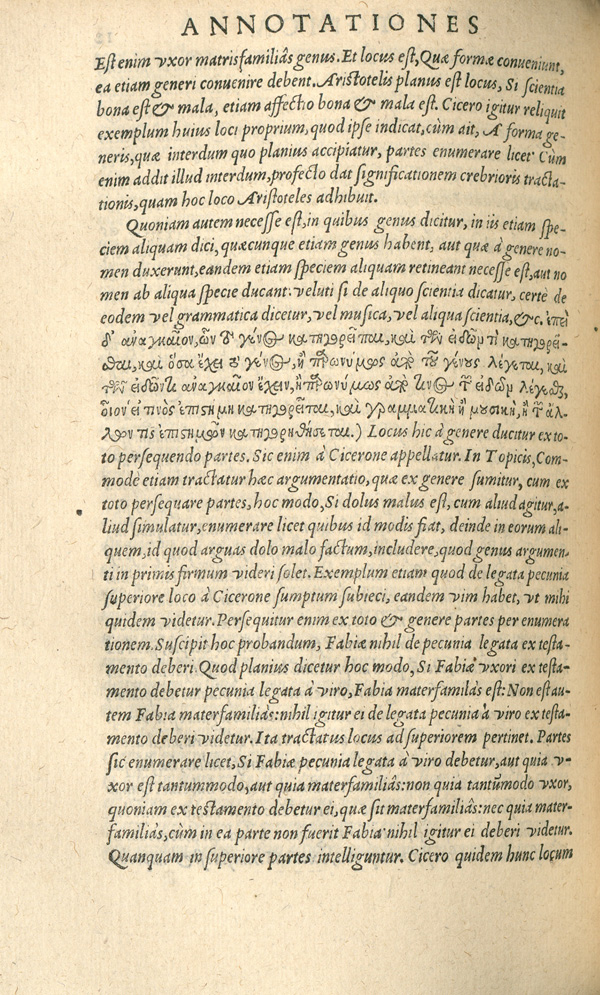 ANNOTATIONES
Est enim vxor matrisfamiliâs genus. Et locus est, Quæ formæ conueniunt,
ea etiam generi conuenire debent. Aristotelis planus est locus, Si scientia
bona est & mala, etiam affectio bona & mala est. Cicero igitur reliquit
exemplum huius loci proprium, quod ipse indicat, cùm ait, A forma ge-
neris, quæ interdum quo planius accipiatur, partes enumerare licet. Cùm
enim addit illud interdum, profecto dat significationem crebrioris tracta-
tionis, quam hoc loco Aristoteles adhibuit.
Quoniam autem necesse est, in quibus genus dicitur, in iis etiam spe-
ciem aliquam dici, quæcunque etiam genus habent, aut quæ à genere no-
men duxerunt, eandem etiam speciem aliquam retineant necesse est, aut no
men ab aliqua specie ducant: veluti si de aliquo scientia dicatur, certè de
eodem vel grammatica dicetur, vel musica, vel aliqua scientia, &c. ἐπεὶ
δ' ἀναγκαῖον, ὧν τὸ γένος κατηγορεῖται, καὶ τῶν εἰδῶν τι κατηγορεῖ-
σθαι, καὶ ὅσα ἔχει τὸ γένος, ἢ παρωνύμως ἀπὸ τοῦ γένους λέγεται, καὶ
τῶν εἰδῶν τι ἀναγκαῖον ἔχειν, ἢ παρωνύμως ἀπό τινος τῶν εἰδῶν λέγεσθαι,
οἷον εἴ τινος ἐπιστήμη κατηγορεῖται, καὶ γραμματικὴ ἢ μουσικὴ, ἢ τῶν ἄλ-
λων τις ἐπιστημῶν κατηγορηθήσεται.) Locus hic à genere ducitur ex to-
to persequendo partes. Sic enim à Cicerone appellatur. In Topicis, Com-
modè etiam tractatur hæc argumentatio, quæ ex genere sumitur, cum ex
toto persequare partes, hoc modo, Si dolus malus est, cum aliud agitur, a-
liud simulatur, enumerare licet quibus id modis fiat, deinde in eorum ali-
quem, id quod arguas dolo malo factum, includere, quod genus argumen-
ti in primis firmum videri solet. Exemplum etiam quod de legata pecunia
superiore loco à Cicerone sumptum subieci, eandem vim habet, vt mihi
quidem videtur. Persequitur enim ex toto & genere partes per enumera
tionem. Suscipit hoc probandum, Fabiæ nihil de pecunia legata ex testa-
mento deberi. Quod planius dicetur hoc modo, Si Fabiæ vxori ex testa-
mento debetur pecunia legata à viro, Fabia materfamiliâs est: Non est au-
tem Fabia materfamiliâs: nihil igitur ei de legata pecunia à viro ex testa-
mento deberi videtur. Ita tractatus locus ad superiorem pertinet. Partes
sic enumerare licet, Si Fabiæ pecunia legata à viro debetur, aut quia v-
xor est tantummodo, aut quia materfamiliâs: non quia tantùmodo vxor,
quoniam ex testamento debetur ei, quæ sit materfamiliâs: nec quia mater-
familiâs, cùm in ea parte non fuerit Fabia: nihil igitur ei deberi videtur.
Quanquam in superiore partes intelliguntur. Cicero quidem hunc locum